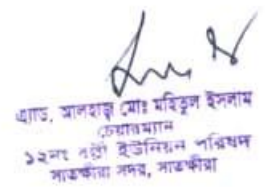 এ্যাড. আলহাজ্ব মোঃ মহিতুল ইসলাম
চেয়ারম্যান
১২নং ইউনিয়ন পরিষদ
সাতক্ষীরা সদর, সাতক্ষীরা